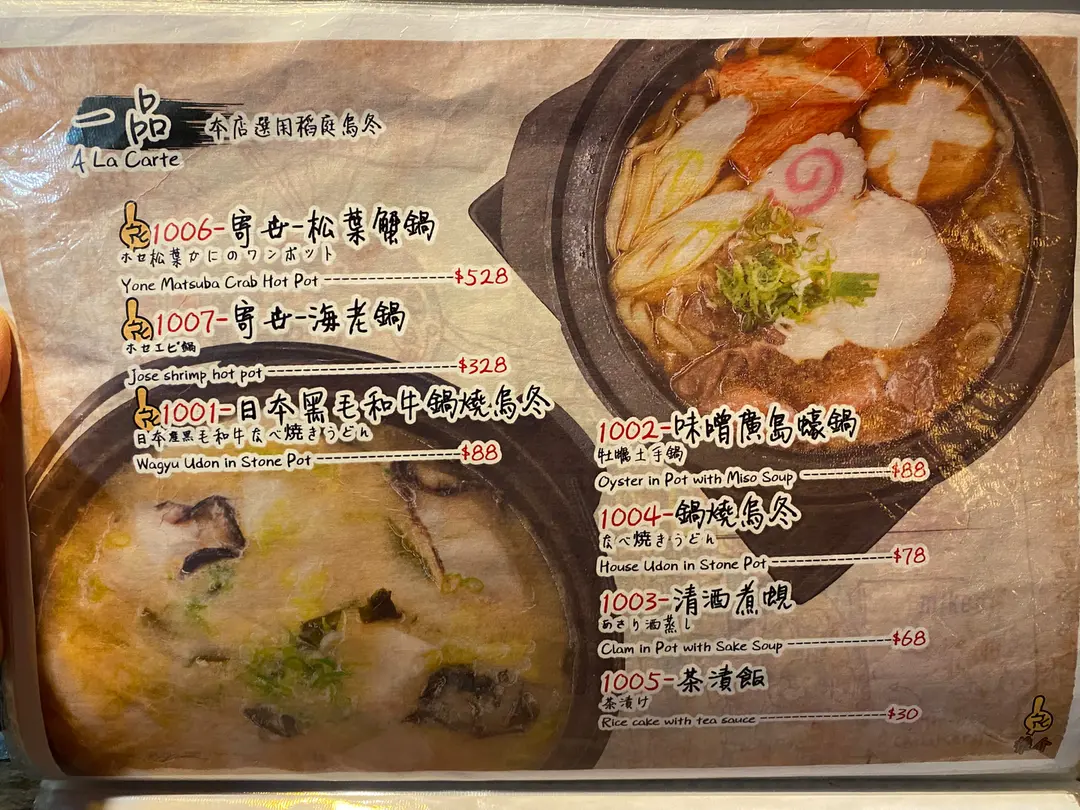 一品
本店選用稻庭烏冬
A La Carte
1006-寄世-松葉蟹鍋
ホセ松葉かにのワンポット
Yone Matsuba Crab Hot Pot $528
1007-寄世-海老鍋
ホセエビ鍋
Jose shrimp hot pot $328
1001-日本黑毛和牛鍋燒烏冬
日本産黒毛和牛なべ焼きうどん
Wagyu Udon in Stone Pot $88
1002-味噌廣島蠔鍋
牡蠣土手鍋
Oyster in Pot with Miso Soup $88
1004-鍋燒烏冬
なべ焼きうどん
House Udon in Stone Pot $78
1003-清酒煮蜆
あさり酒蒸し
Clam in Pot with Sake Soup $68
1005-茶漬飯
茶漬け
Rice cake with tea sauce $30